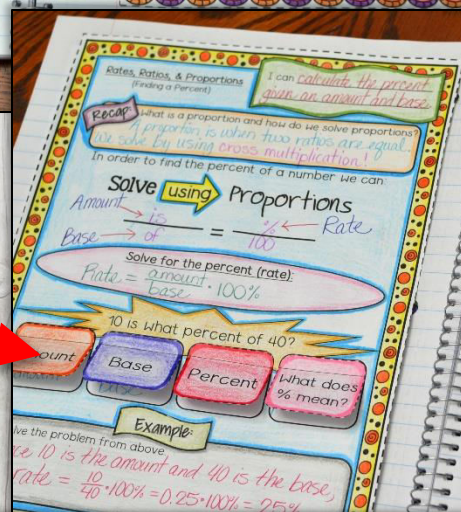 Rates, Ratios, & Proportions
(Finding a Percent)
I can calculate the percent
given an amount and base.
Recap:
What is a proportion and how do we solve proportions?
A proportion is when two ratios are equal.
We solve by using cross multiplication!
In order to find the percent of a number we can
Solve using Proportions
Amount → is = % ← Rate
Base → of 100
Solve for the percent (rate):
Rate = amount/base · 100%
10 is what percent of 40?
ount
Base
Percent
What does
% mean?
Example:
lve the problem from above
ce 10 is the amount and 40 is the base,
rate = 10/40 · 100% = 0.25 · 100% = 25%